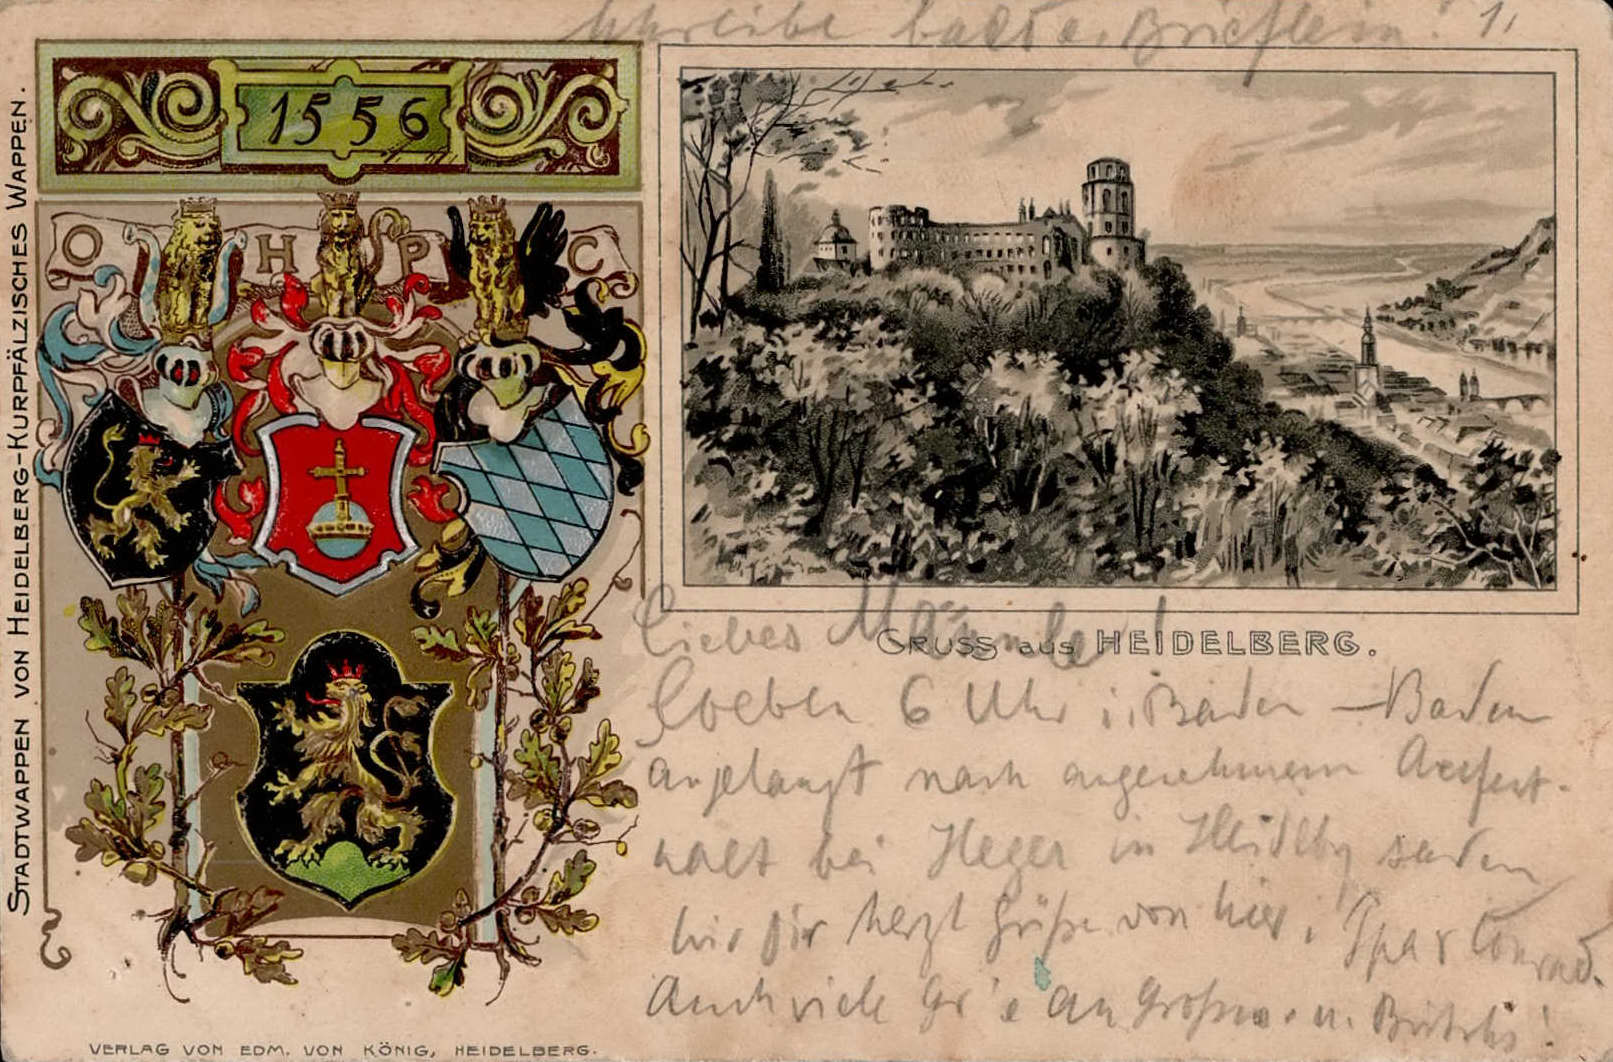 Schreibe bald e. Brieflein! 1,
1556
O H P C
STADTWAPPEN VON HEIDELBERG-KURPFÄLZISCHES WAPPEN.
GRUSS aus HEIDELBERG.
Liebes
Soeben 6 Uhr i. Baden-Baden
angelangt nach angenehmem Aufent-
halt bei Heger in senden
wir dir herzl Grüße von hier, Conrad.
Auch viele an u.
VERLAG VON EDM. VON KÖNIG, HEIDELBERG.